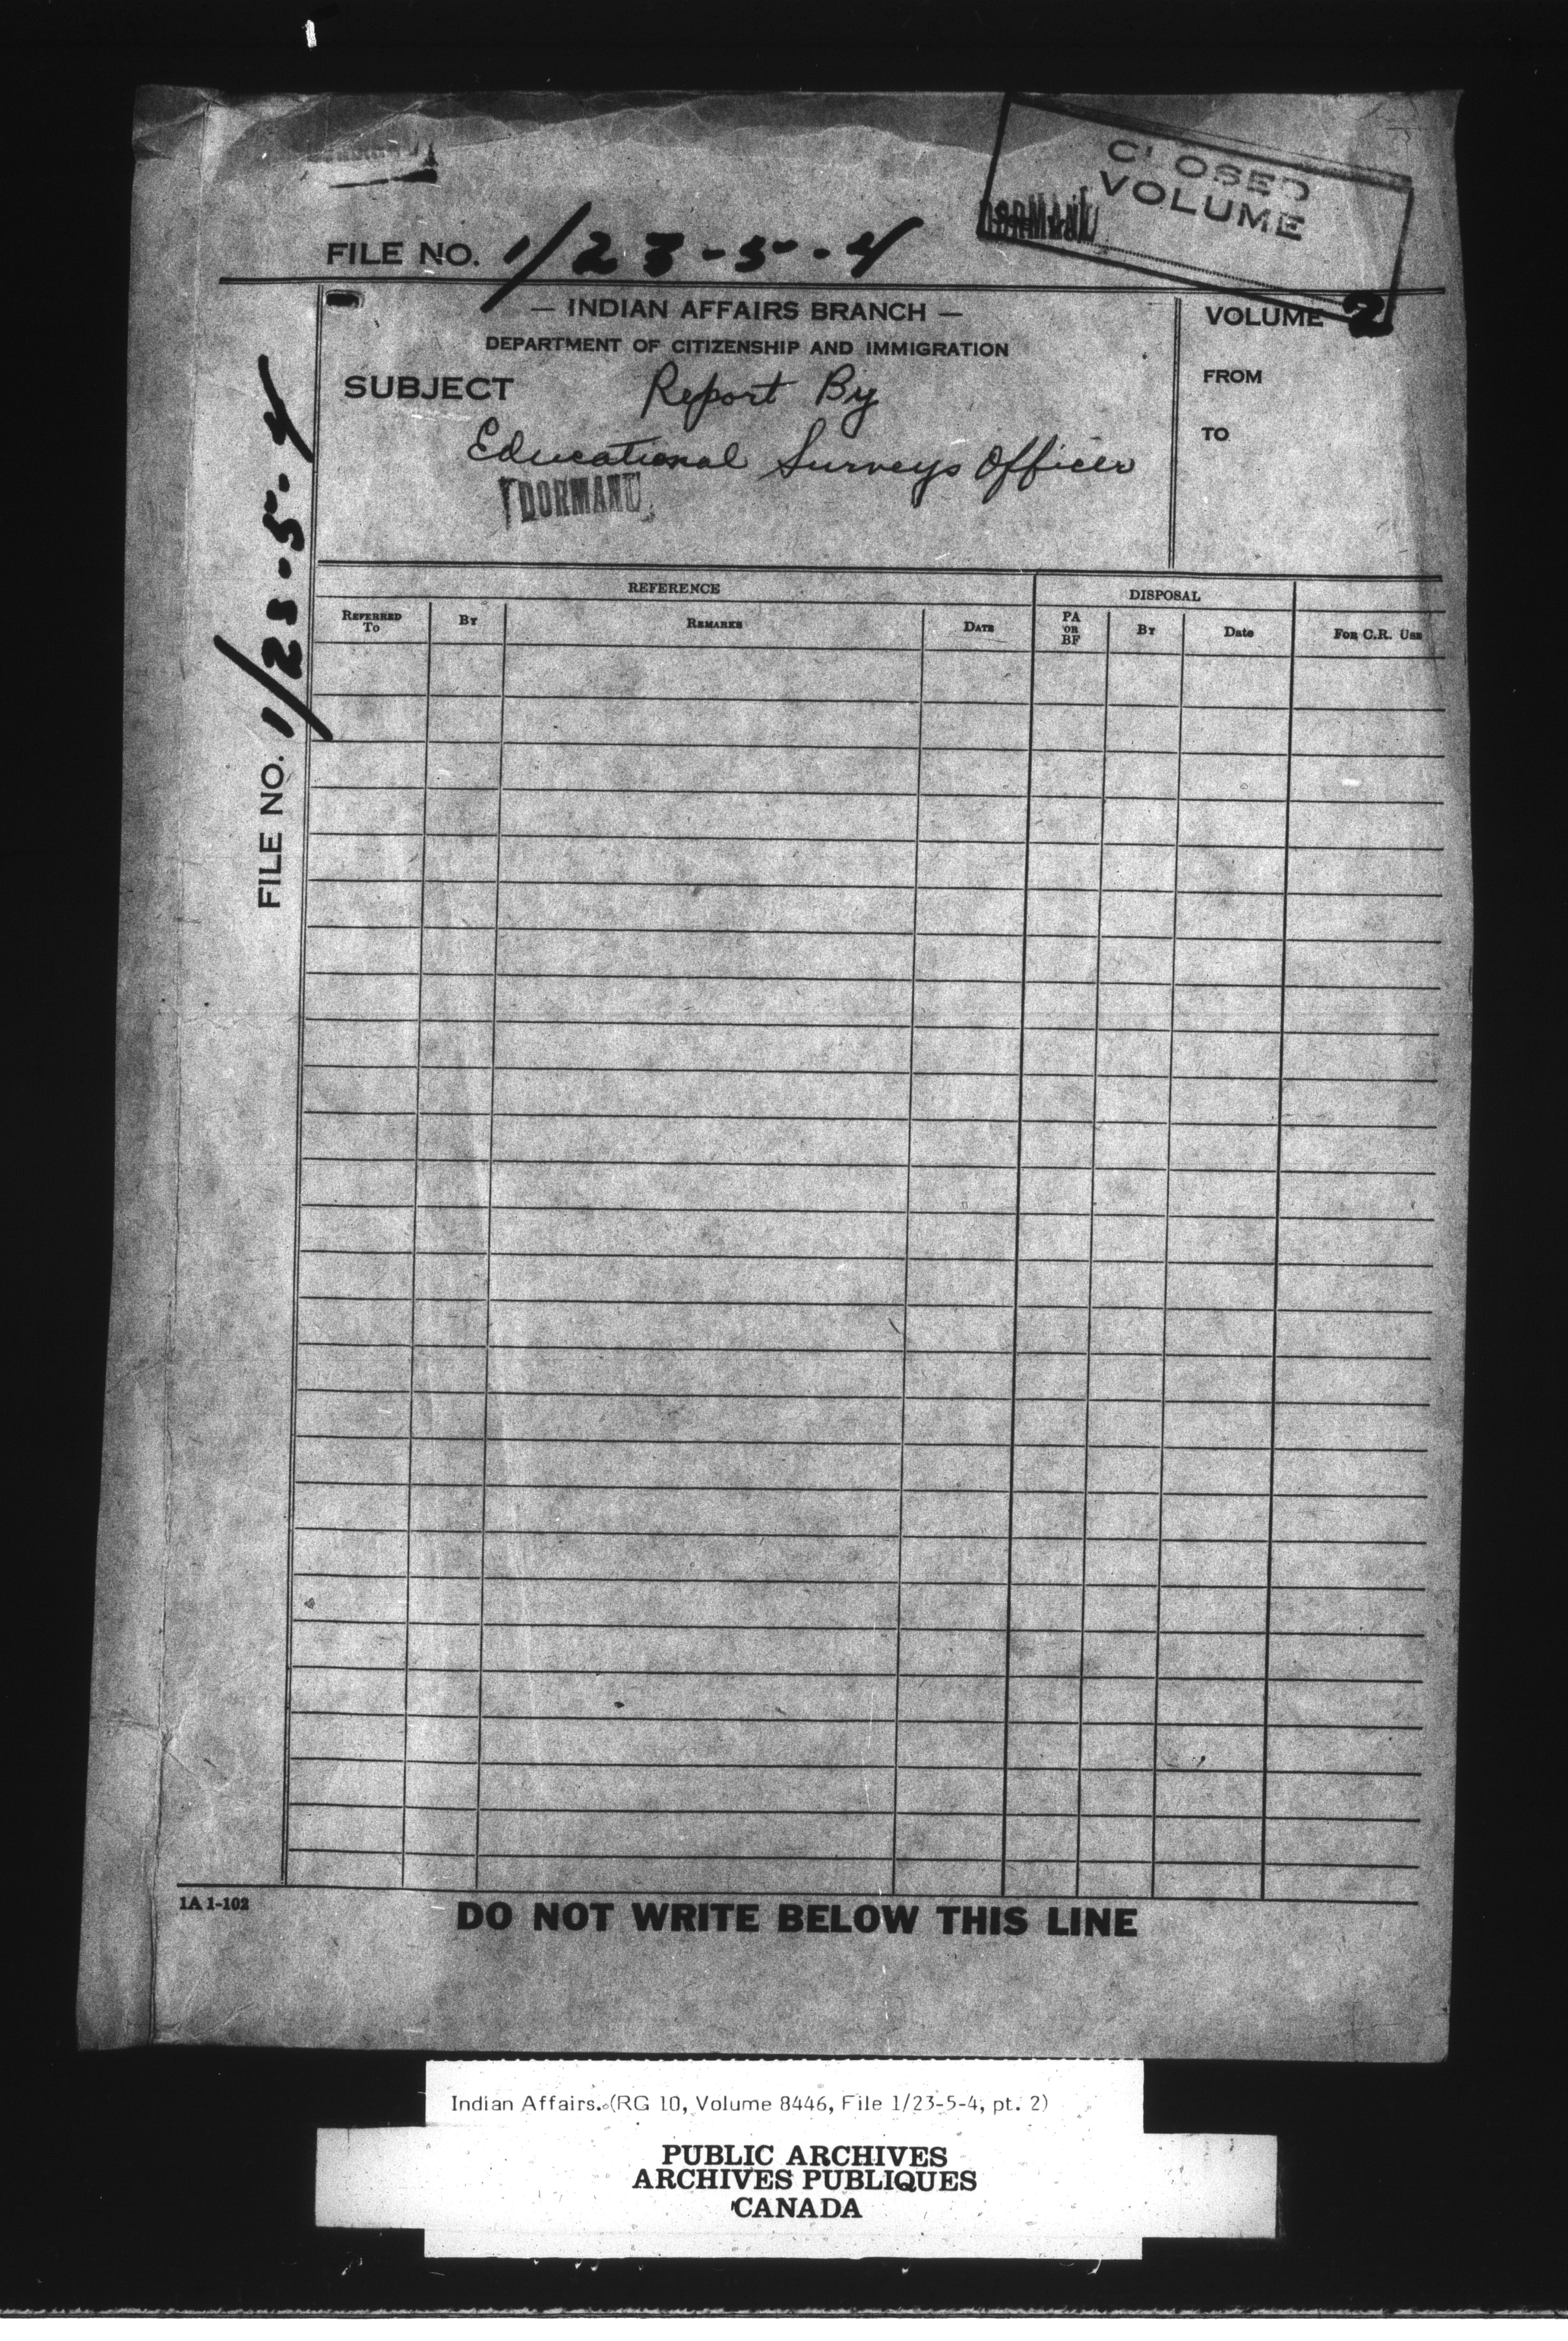 CLOSED
VOLUME
FILE NO. 1/23-5-4
— INDIAN AFFAIRS BRANCH —
DEPARTMENT OF CITIZENSHIP AND IMMIGRATION
SUBJECT Report By
Educational Surveys Officer
DORMANT
VOLUME 2
FROM
TO
FILE NO. 1/23-5-4
REFERENCE
DISPOSAL
REFERRED TO
BY
REMARKS
DATE
PA OR BF
BY
Date
FOR C.R. USE
1A 1-102
DO NOT WRITE BELOW THIS LINE
Indian Affairs. (RG 10, Volume 8446, File 1/23-5-4, pt. 2)
PUBLIC ARCHIVES
ARCHIVES PUBLIQUES
CANADA